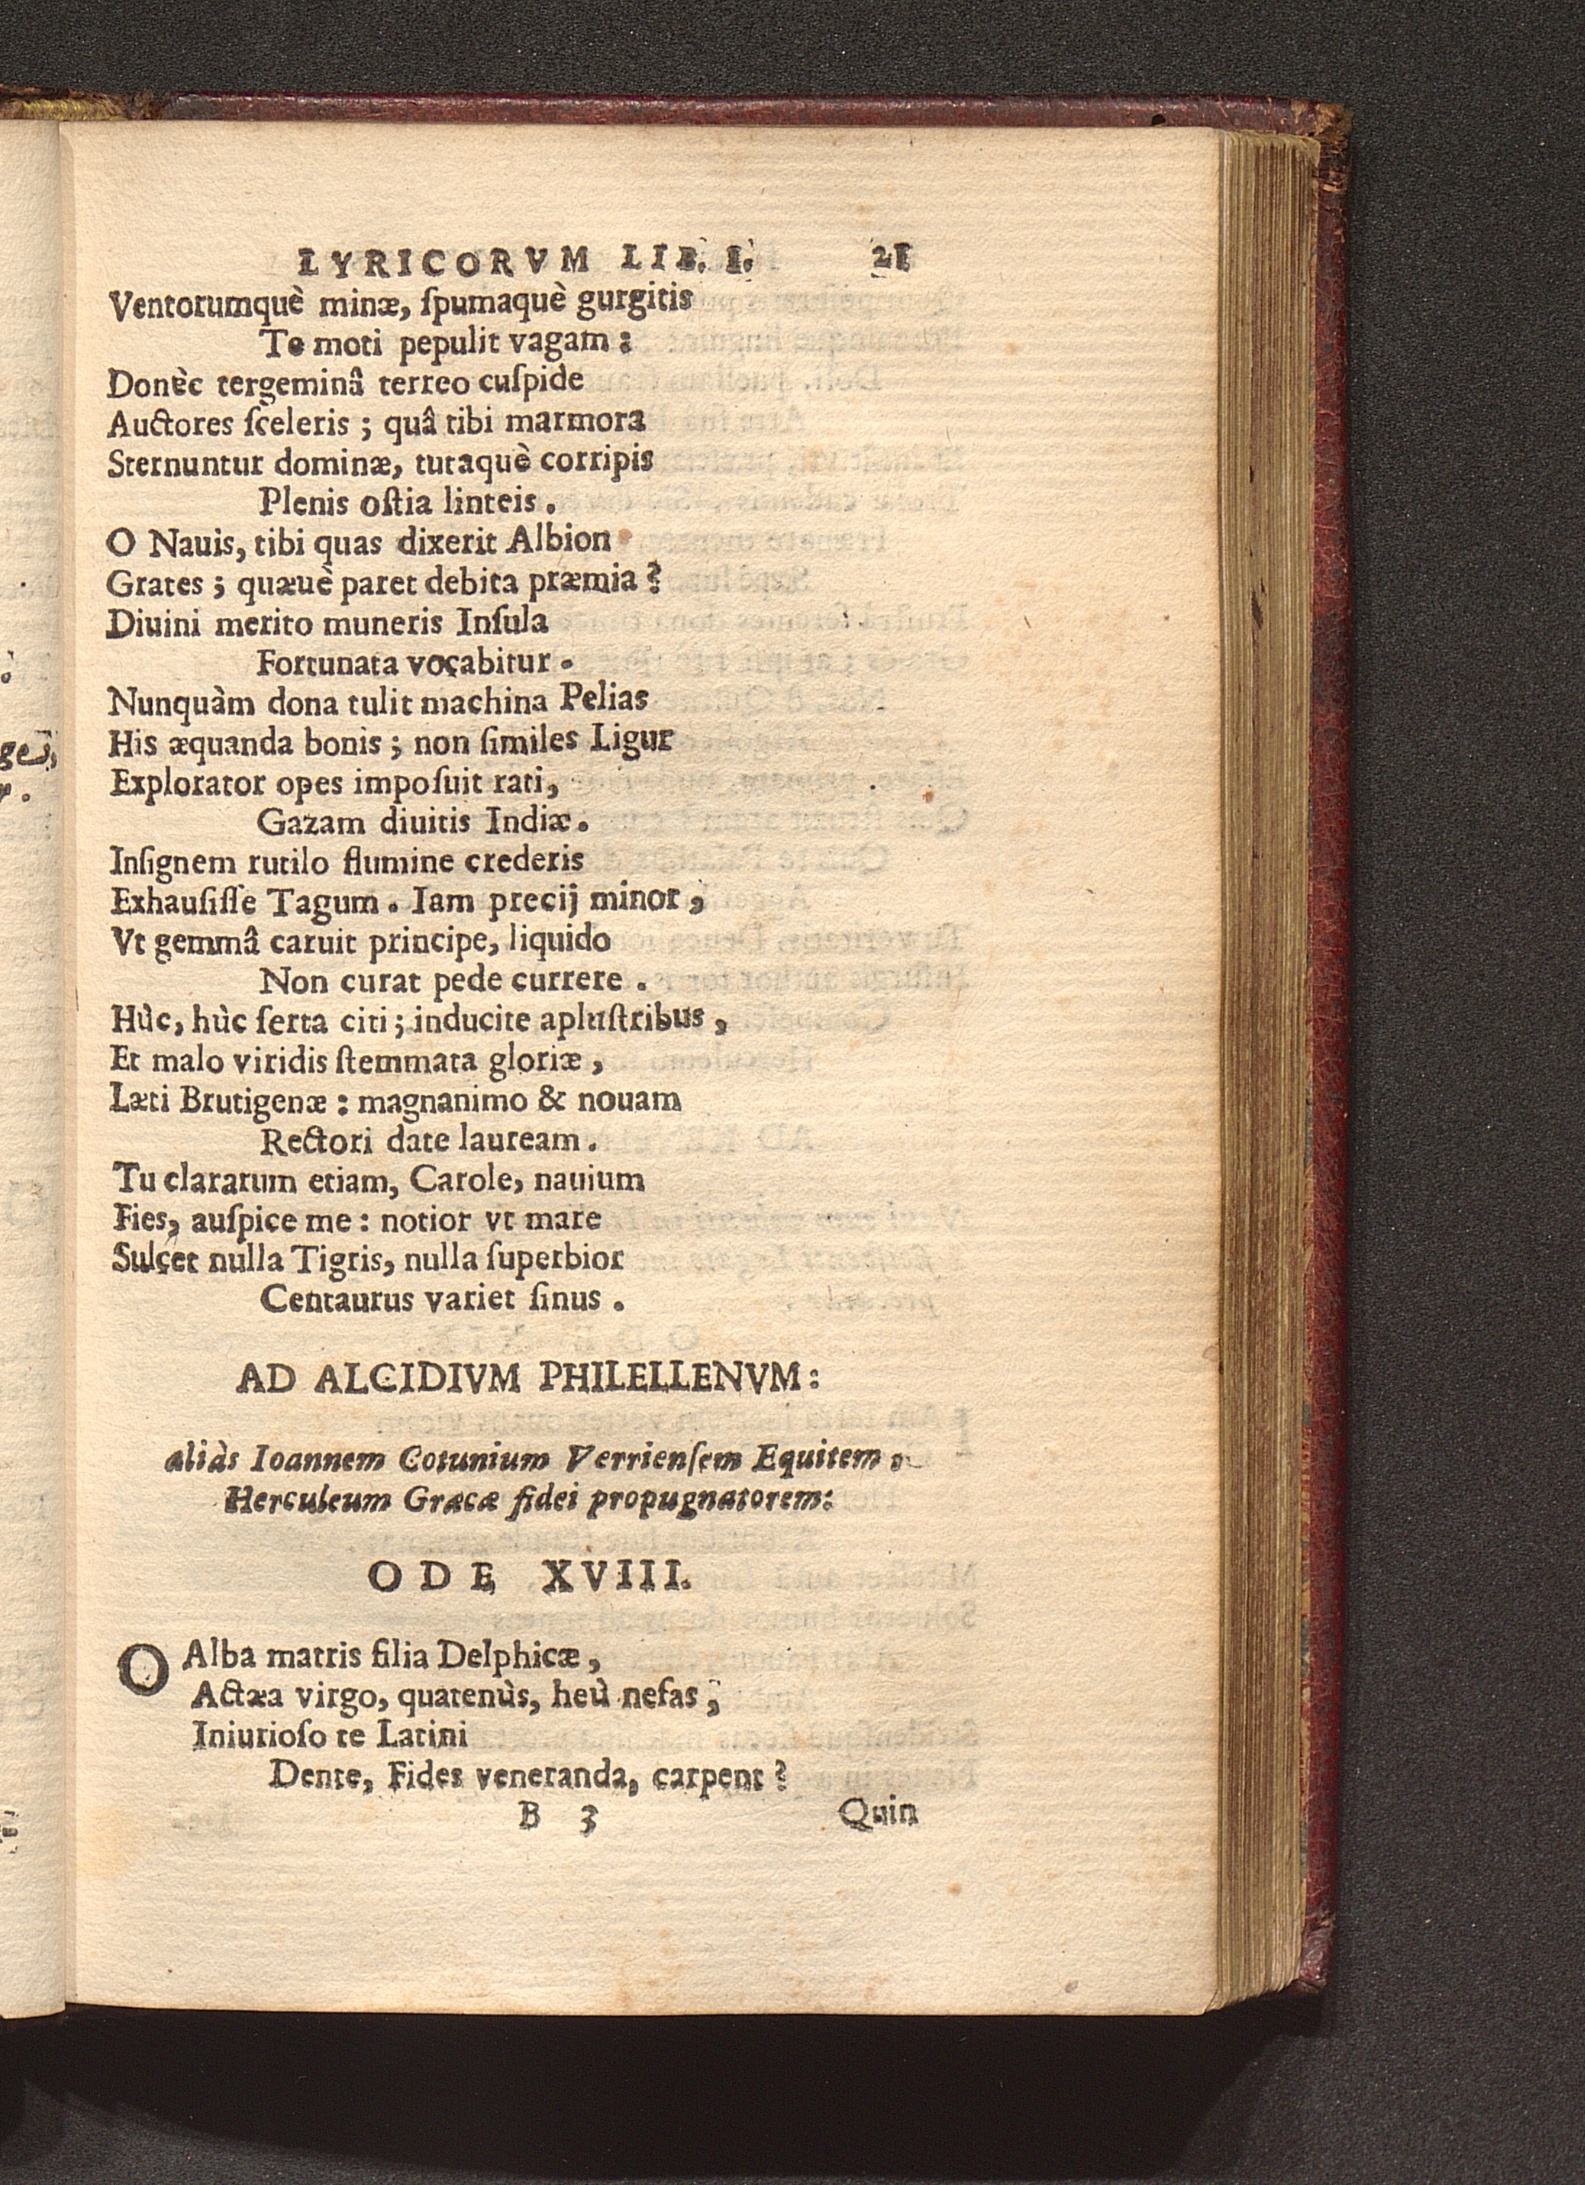 LYRICORVM LIB. I. 21
Ventorumquè minæ, ſpumaquè gurgitis
Te moti pepulit vagam:
Donèc tergeminâ terreo cuſpide
Auctores ſceleris; quâ tibi marmora
Sternuntur dominæ, tutaquè corripis
Plenis oſtia linteis.
O Nauis, tibi quas dixerit Albion
Grates; quæuè paret debita præmia?
Diuini merito muneris Inſula
Fortunata vocabitur.
Nunquàm dona tulit machina Pelias
His æquanda bonis; non ſimiles Ligur
Explorator opes impoſuit rati,
Gazam diuitis Indiæ.
Inſignem rutilo flumine crederis
Exhauſiſſe Tagum. Iam precij minor,
Vt gemmâ caruit principe, liquido
Non curat pede currere.
Hùc, hùc ſerta citi; inducite apluſtribus,
Et malo viridis ſtemmata gloriæ,
Læti Brutigenæ: magnanimo & nouam
Rectori date lauream.
Tu clararum etiam, Carole, nauium
Fies, auſpice me: notior vt mare
Sulcet nulla Tigris, nulla ſuperbior
Centaurus variet ſinus.
AD ALCIDIVM PHILELLENVM:
aliàs Ioannem Cotunium Verrienſem Equitem,
Herculeum Græcæ fidei propugnatorem:
ODE XVIII.
O Alba matris filia Delphicæ,
Actæa virgo, quatenùs, heù nefas,
Iniurioſo te Latini
Dente, Fides veneranda, carpent?
B 3 Quin